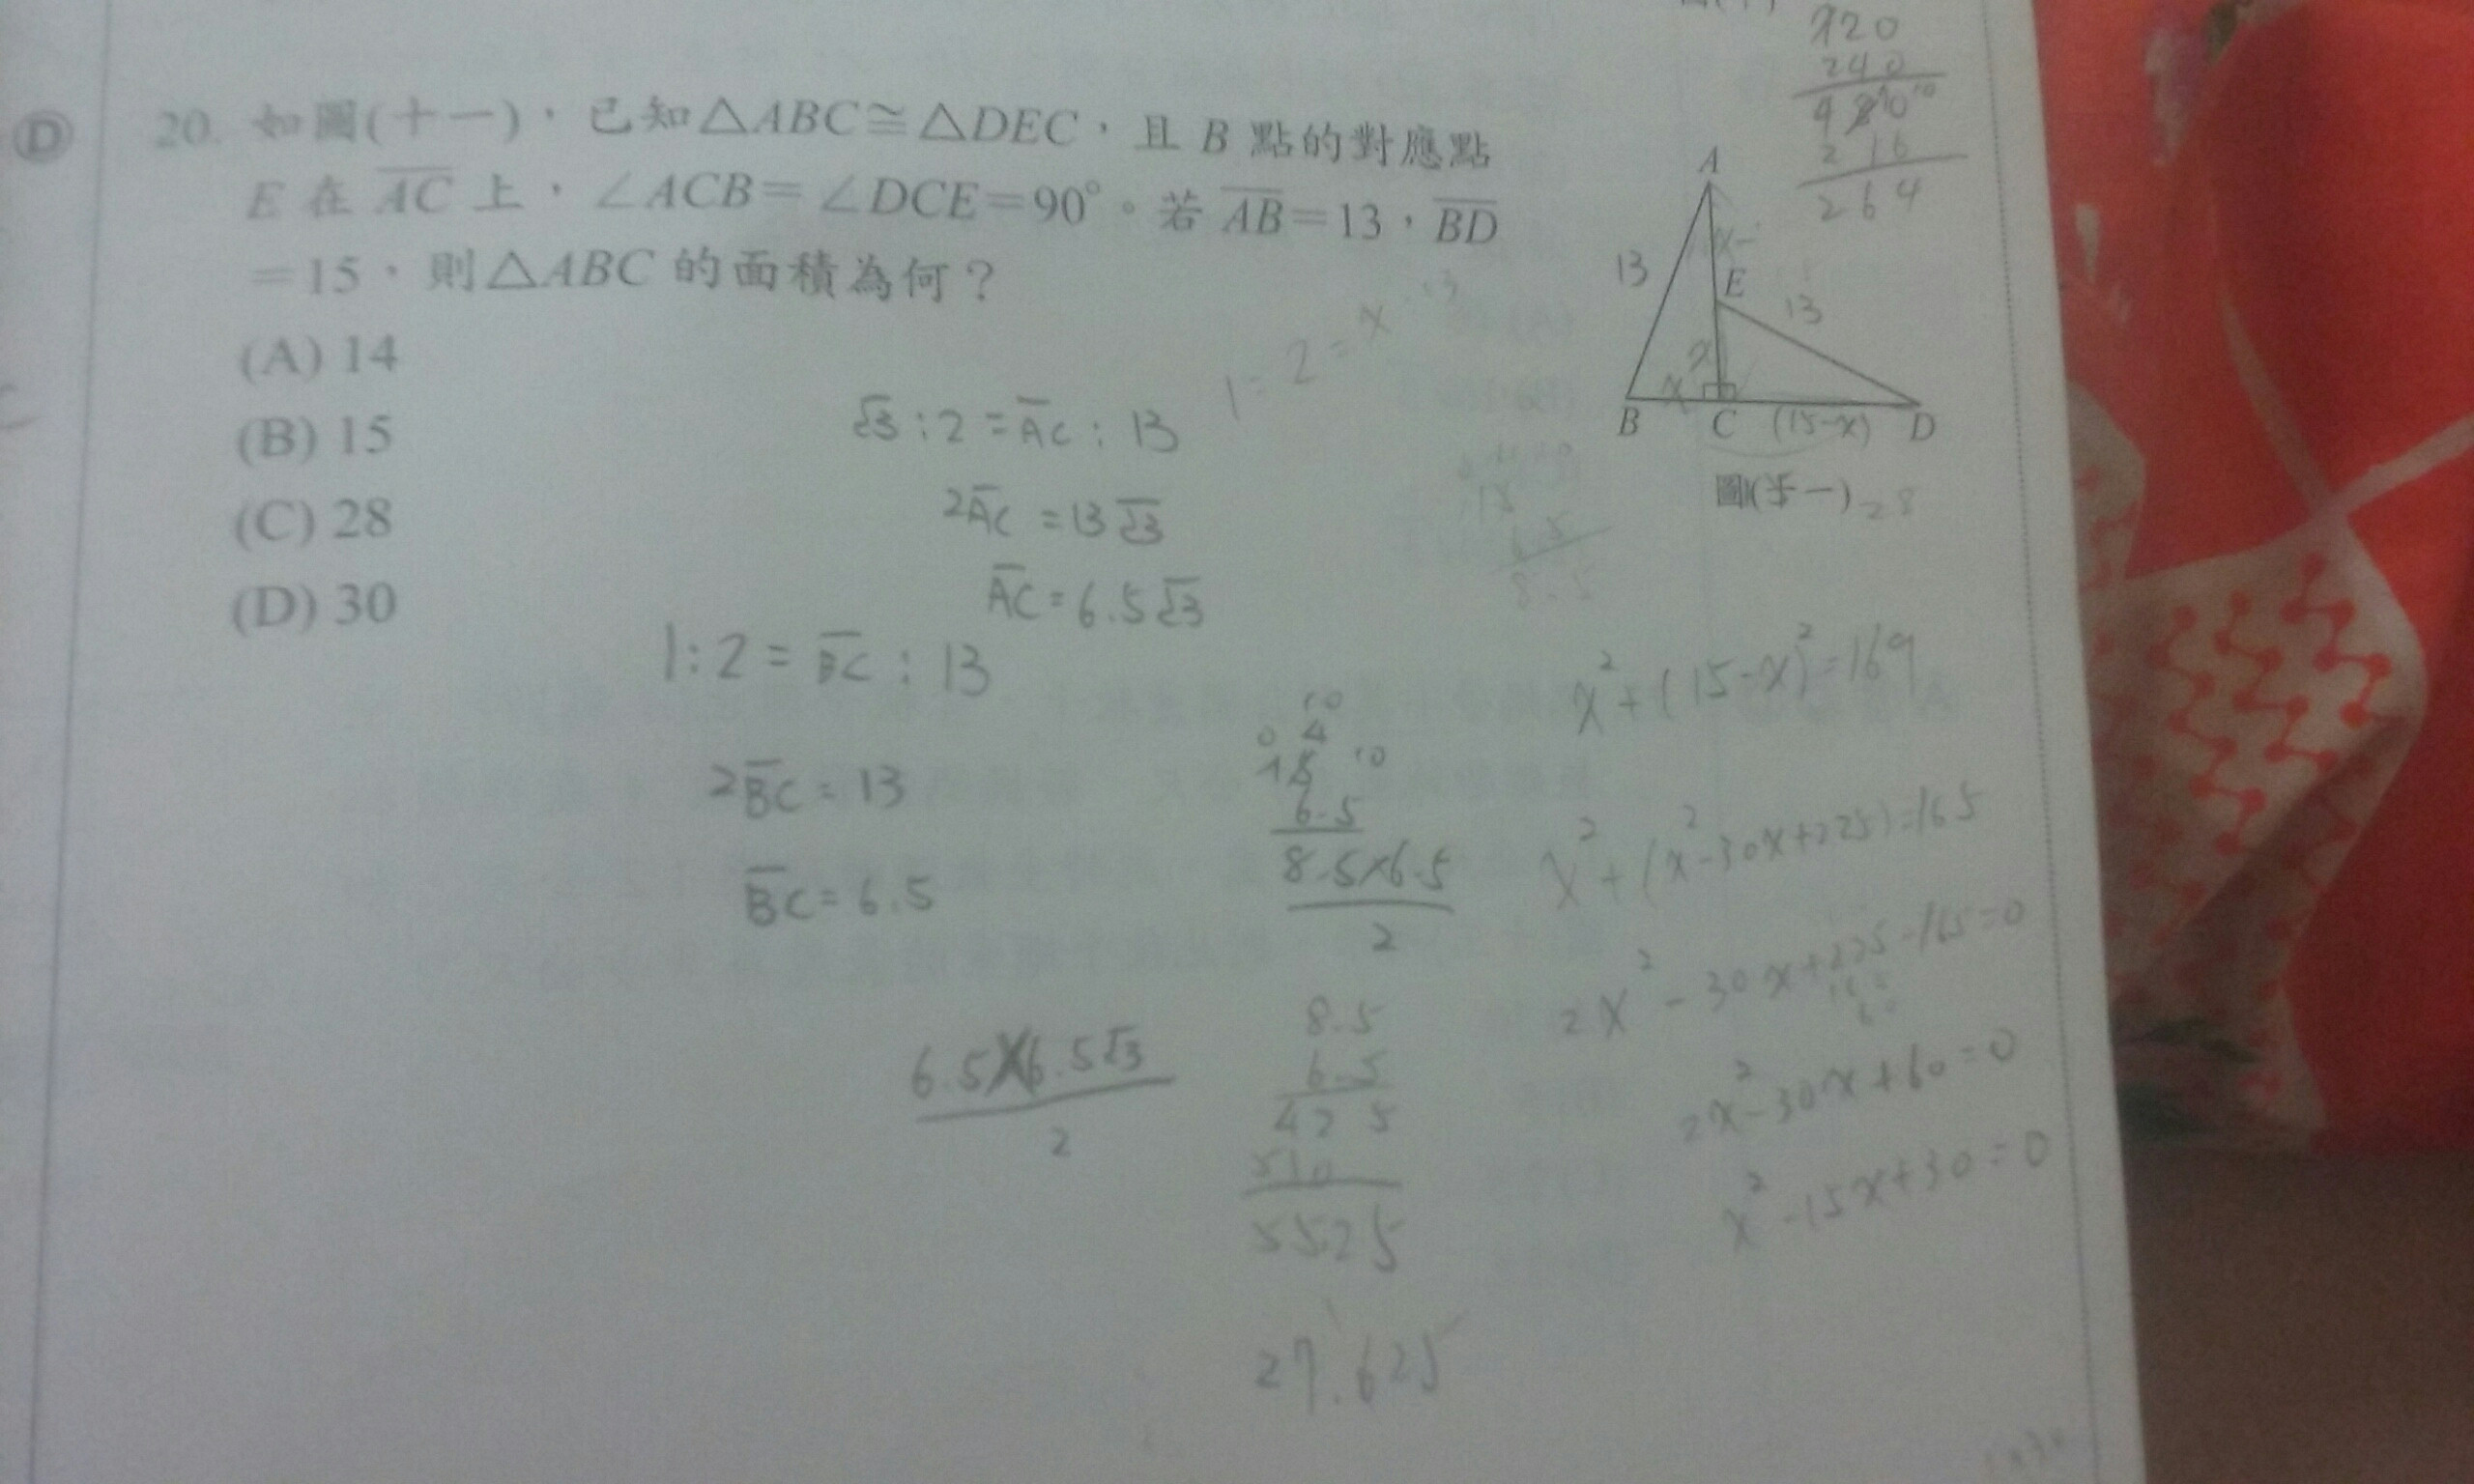 D
20. 如圖(十一)，已知△ABC≅△DEC，且 B 點的對應點
E 在 AC 上，∠ACB=∠DCE=90°。若 AB=13，BD
=15，則△ABC 的面積為何？
(A) 14
(B) 15
(C) 28
(D) 30
920
240
216
264
A
13
E
13
x
x
B C (15-x) D
圖(十一)
28
1:2=x:13
√3:2=AC:13
2AC=13√3
AC=6.5√3
1:2=BC:13
2BC=13
BC=6.5
6.5×6.5√3
2
10
0 4
15 10
6.5
8.5×6.5
2
8.5
6.5
425
510
5525
27.625
x²+(15-x)²=169
x²+(x²-30x+225)=165
2x²-30x+225-165=0
2x²-30x+60=0
x²-15x+30=0